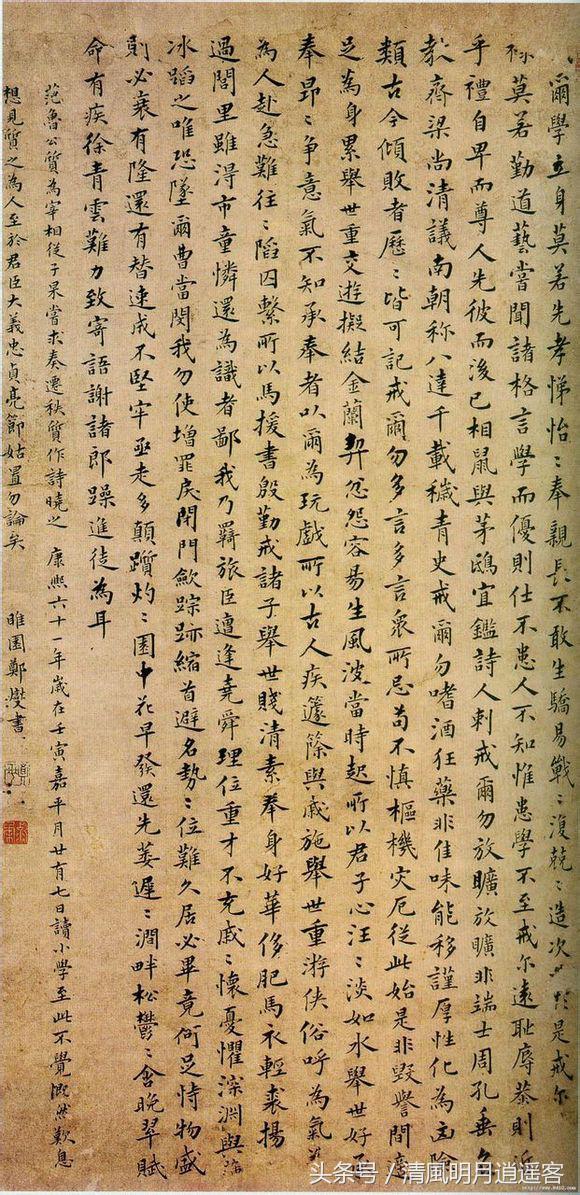 爾學立身莫若先孝悌怡〻奉親長不敢生驕易戰〻復兢〻造次必於是戒尔
祢莫若勤道藝嘗聞諸格言學而優則仕不患人不知惟患學不至戒尔遠恥辱恭則近
乎禮自卑而尊人先彼而後己相鼠與茅鴟宜鑑詩人刺戒爾勿放曠放曠非端士周孔垂名
教齊梁尚清議南朝称八達千載穢青史戒爾勿嗜酒狂藥非佳味能移謹厚性化為凶險
類古今傾敗者歷〻皆可記戒爾勿多言多言衆所忌苟不慎樞機灾厄從此始是非毀譽間適
足為身累舉世重交遊擬結金蘭契忿怨容易生風波當時起所以君子心汪〻淡如水舉世好承
奉昂〻争意氣不知承奉者以爾為玩戲所以古人疾籧篨與戚施舉世重游俠俗呼為氣義
為人赴急難往〻陷囚繫所以馬援書殷勤戒諸子舉世賤清素奉身好華侈肥馬衣輕裘揚
過閭里雖得市童憐還為識者鄙我乃羇旅臣遭逢堯舜理位重才不充戚〻懷憂懼深淵與薄
冰蹈之唯恐墜爾曹當閔我勿使增罪戾閉門歛踪跡縮首避名勢〻位難久居必畢竟何足恃物盛
則必衰有隆還有替速成不堅牢亟走多顛躓灼〻園中花早發還先萎遲〻澗畔松鬱〻含晚翠賦
命有疾徐青雲難力致寄語謝諸郎躁進徒為耳
范魯公質為宰相從子杲嘗求奏遷秩質作詩曉之 康熙六十一年歲在壬寅嘉平月廿有七日讀小學至此不覺慨然歎息
想見質之為人至於君臣大義忠貞亮節姑置勿論矣 睢園鄭燮書
头条号 / 清風明月逍遥客